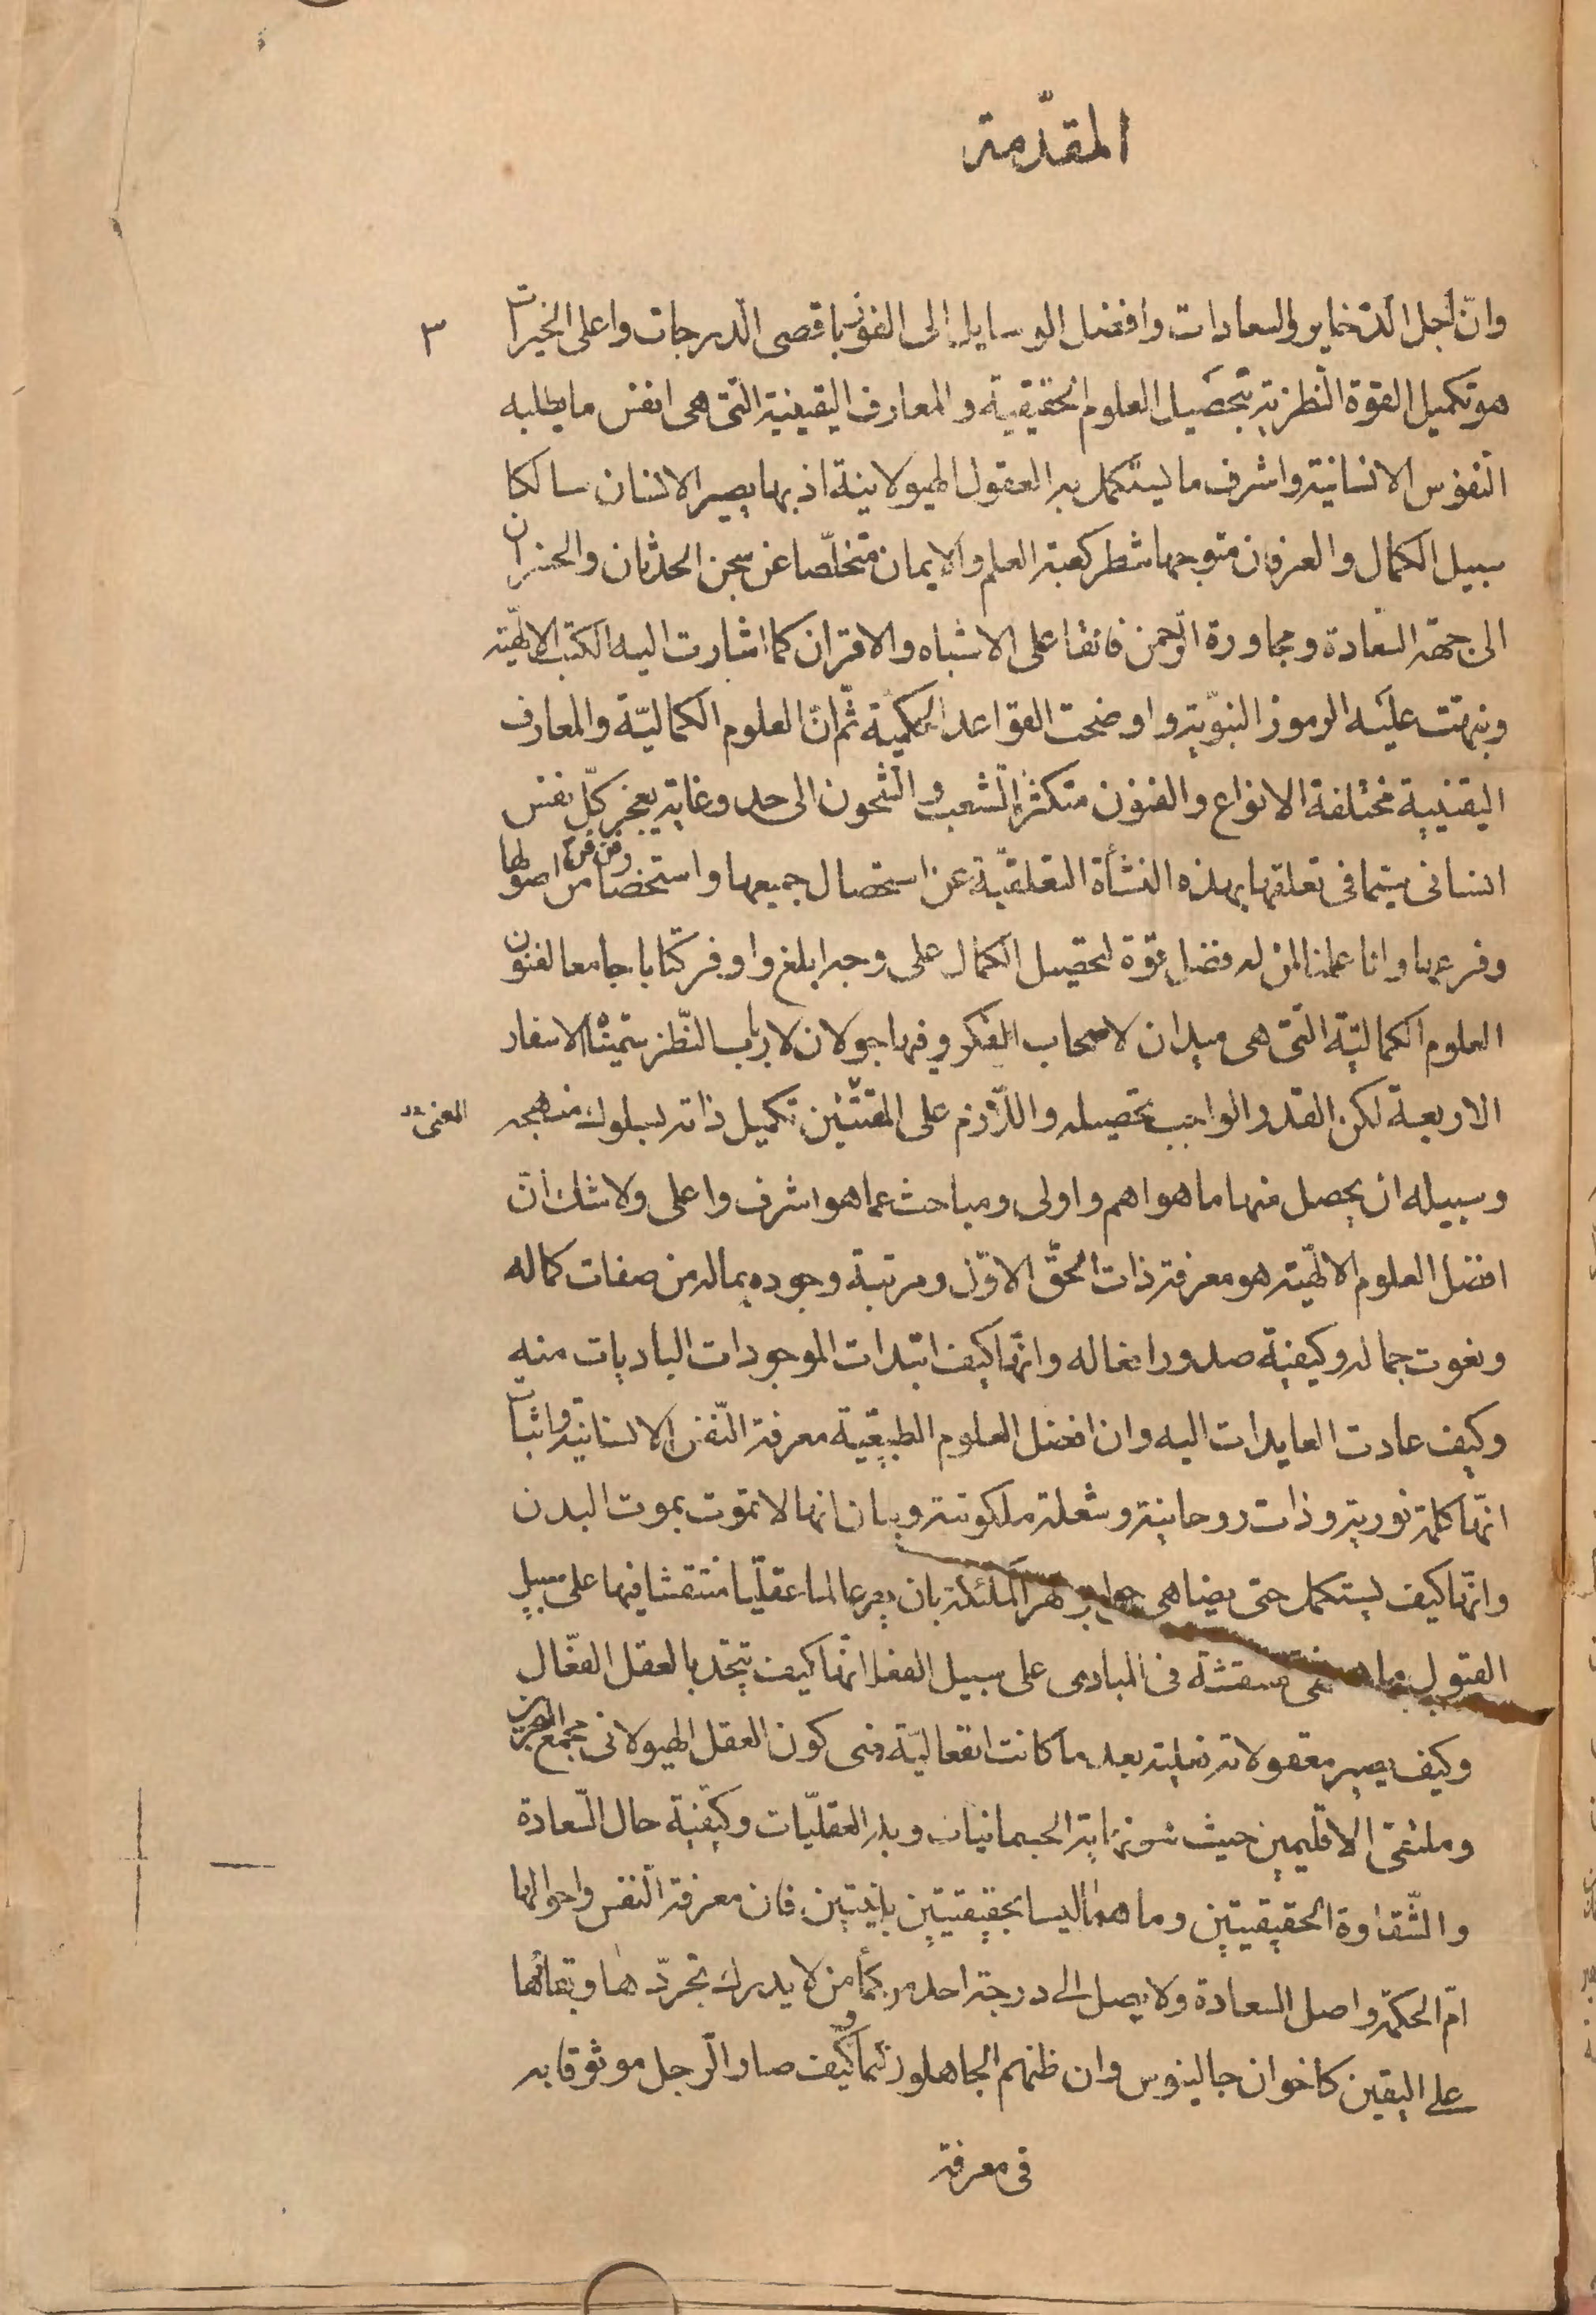 المقدّمة
وانّ اجل الذخاير والسعادات وافضل الوسايل الى الفوز باقصى الدرجات واعلى الخيرات
٣
هو تكميل القوة النظرية بتحصيل العلوم الحقيقية والمعارف اليقينية التى هى انفس ما يطلبه
النفوس الانسانية واشرف ما يستكمل به العقول الهيولانية اذ بها يصير الانسان سالكا
سبيل الكمال والعرفان متوجها شطر كعبة العلم والايمان متخلّصا عن سجن الحدثان والخسران
الى جهة السعادة ومجاورة الرّحمن فائقا على الاشباه والاقران كما اشارت اليه الكتب الالهيّة
ونبهت عليه الرموز النبويّة واوضحت القواعد الحكميّة ثمّ انّ العلوم الكماليّة والمعارف
اليقينية مختلفة الانواع والفنون متكثرة الشعب والشجون الى حد وغاية يعجز كلّ نفس
انسانى سيما فى تعلقها بهذه النشأة التعلقيّة عن استحصال جميعها واستحضار فن فن من اصولها
وفروعها وانا عملنا لمن له فضل قوّة لتحصيل الكمال على وجه ابلغ واوفر كتابا جامعا لفنون
العلوم الكماليّة التى هى ميدان لاصحاب الفكر وفيها جولان لارباب النّظر سميّناه الاسفار
الاربعة لكن القدر الواجب تحصيله واللّازم على المقتنين تكميل ذاته لسلوك منهجه
المعنى
وسبيله ان يحصل منها ما هو اهم واولى ومباحث عما هو اشرف واعلى ولا شك انّ
افضل العلوم الالهيّة هو معرفة ذات الحقّ الاوّل ومرتبة وجوده بماله من صفات كماله
ونعوت جماله وكيفية صدور افعاله وانّها كيف ابتدات الموجودات الباديات منه
وكيف عادت العايدات اليه وان افضل العلوم الطبيعيّة معرفة النّفس الانسانية واثبات
انّها كلمة نورية وذات روحانية وشعلة ملكوتية وبيان انها لا تموت بموت البدن
وانّها كيف يستكمل حتى يضاهى جواهر الملئكة بان يصير عالما عقليّا منتقشا فيها على سبيل
القبول ما هى منتقشة فى المبادى على سبيل الفعل انّها كيف يتحّد بالعقل الفعّال
وكيف يصير معقولاته فعلية بعد ما كانت انفعاليّة فى كون العقل الهيولانى مجمع البحرين
وملتقى الاقليمين حيث هو نهاية الجسمانيات وبدء العقليّات وكيفيّة حال السّعادة
والشّقاوة الحقيقيتين وما هما ليسا بحقيقيتين يقينيتين فان معرفة النفس واحوالها
امّ الحكمة واصل السعادة ولا يصل الى درجة احد من الحكمأ من لا يدرك تجرّدها وبقائها
على اليقين كاخوان جالينوس وان ظنهم الجاهلون حكيما وكيف صار الّرجل موثوقا به
فى معرفة